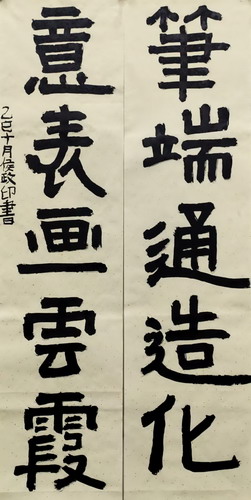 筆端通造化
意表画雲霞
乙巳十月侯政印書